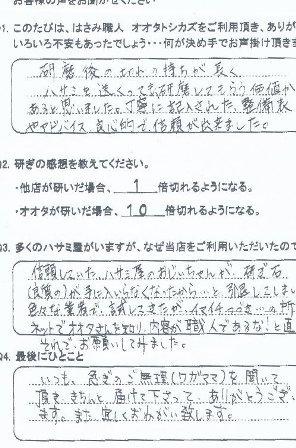 お客様の声をお聞かせください
Q1. このたびは、はさみ職人 オオタトシカズをご利用頂き、ありが
いろいろ不安もあったでしょう・・・何が決め手でお声掛け頂きま
研磨後の切れの持ちが長く、
ハサミを送ってでも研磨してもらう価値か
あると思いました。丁寧に記入された、整備表
やアドバイス 良心的で信頼が出来ました。
Q2. 研ぎの感想を教えてください。
・他店が研いだ場合、 1 倍切れるようになる。
・オオタが研いだ場合、 10 倍切れるようになる。
Q3. 多くのハサミ屋がいますが、なぜ当店をご利用いただいたので
信頼していた、ハサミ屋のおじいちゃんが、研ぎ石
(良質の)が手に入らなくなったから…と引退してしまい
色々な業者で、試してきたが、イマイチ
ネットでオオタさんを知り、内容が職人であるな!と直
それで、お願いしてみました。
Q4. 最後にひとこと
いつも、急ぎのご無理(ワガママ)を聞いて
頂き、きちんと届けて下さって ありがとうござい
ます。また 宜しくおねがい致します。